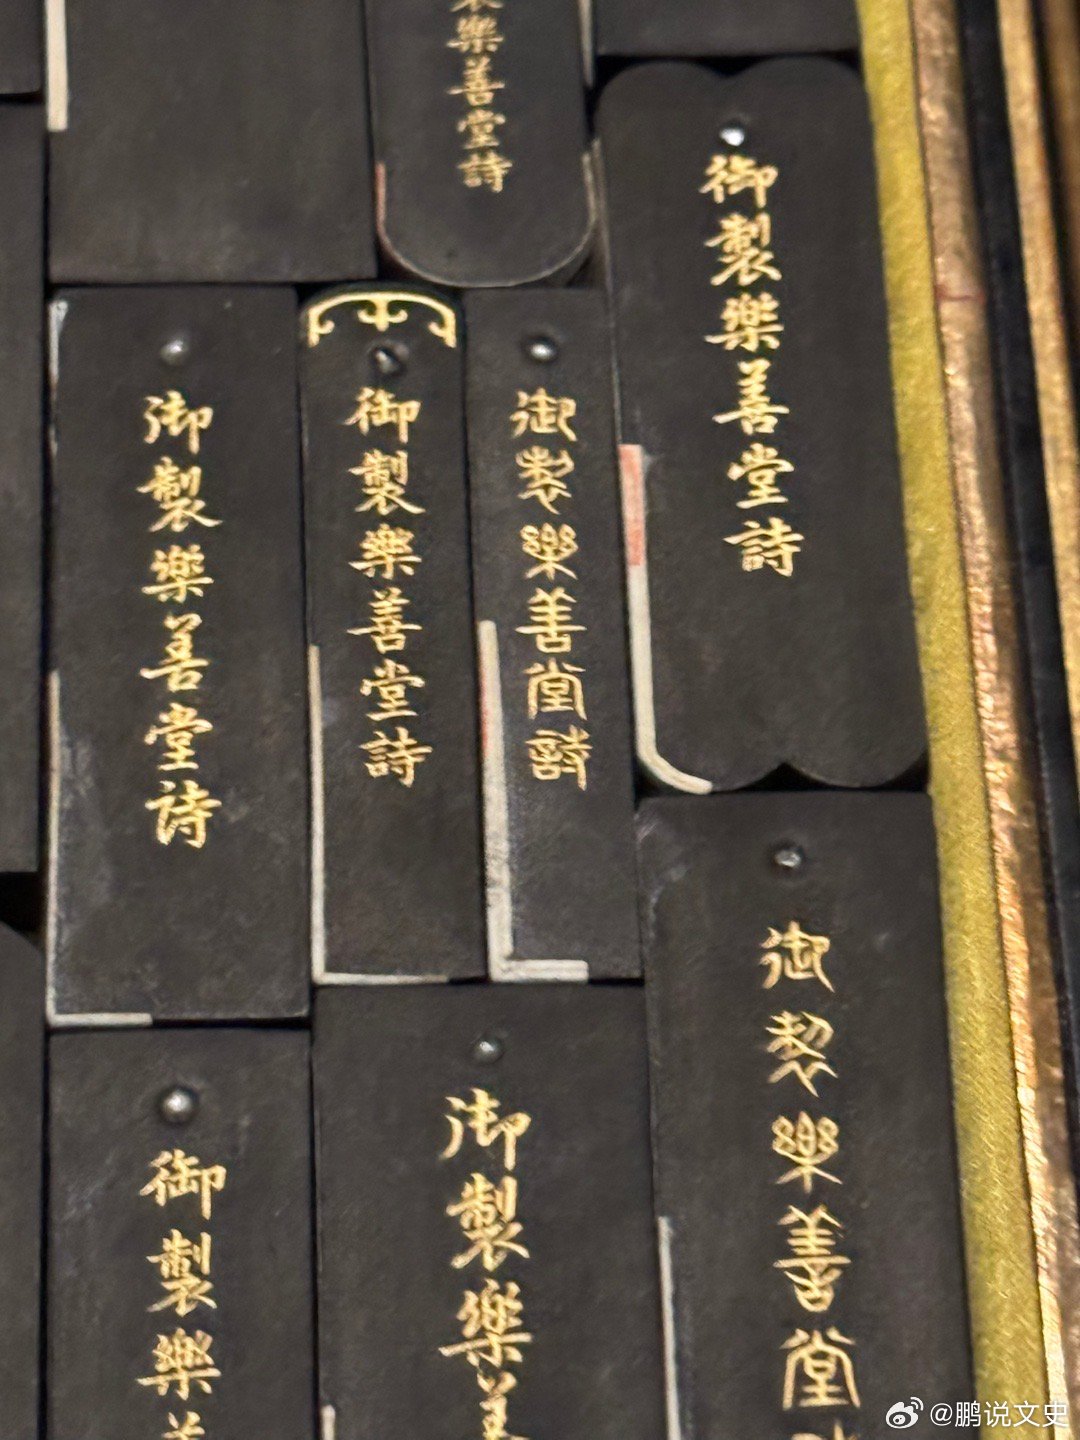 樂善堂詩
御製樂善堂詩
御製樂善堂詩
御製樂善堂詩
御製樂善堂詩
御製樂善堂
御製樂
御製樂善
@鹏说文史